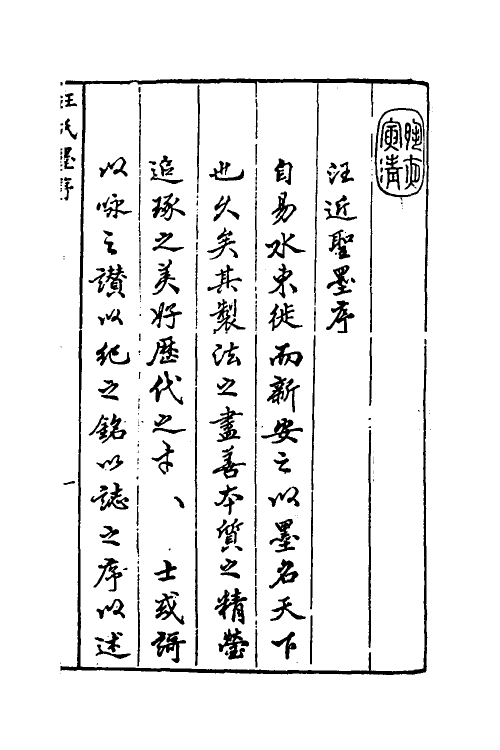 汪近聖墨序
自易水東徙而新安之以墨名天下
也久矣其製法之盡善本質之精瑩
追琢之美好歷代之才、士或詩
以咏之讃以紀之銘以誌之序以述
汪氏墨序
一